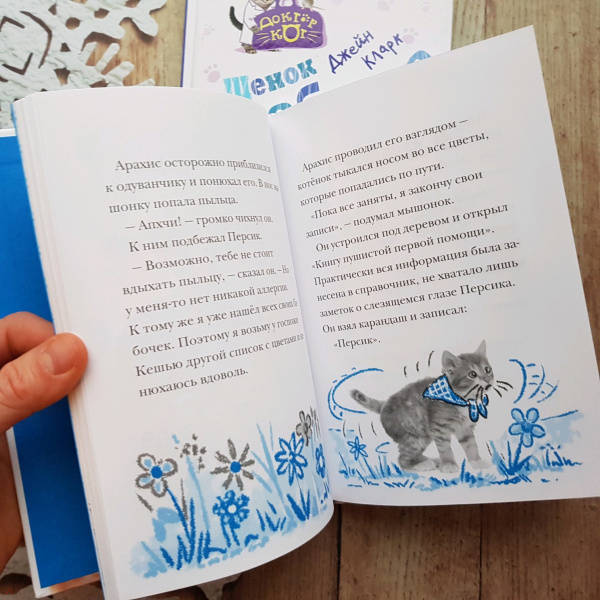 ДОКТОР
КОТ
Джейн
Кларк
Щенок
Арахис осторожно приблизился
к одуванчику и понюхал его. В нос
шонку попала пыльца.
— Апхчи! — громко чихнул он.
К ним подбежал Персик.
— Возможно, тебе не стоит
вдыхать пыльцу, — сказал он. — Но
у меня-то нет никакой аллергии.
К тому же я уже нашёл всех своих
бочек. Поэтому я возьму у госпожи
Кешью другой список с цветами и
нюхаюсь вдоволь.
Арахис проводил его взглядом —
котёнок тыкался носом во все цветы,
которые попадались по пути.
“Пока все заняты, я закончу свои
записи”, — подумал мышонок.
Он устроился под деревом и открыл
«Книгу пушистой первой помощи».
Практически вся информация была за-
несена в справочник, не хватало лишь
заметок о слезящемся глазе Персика.
Он взял карандаш и записал:
“Персик”.